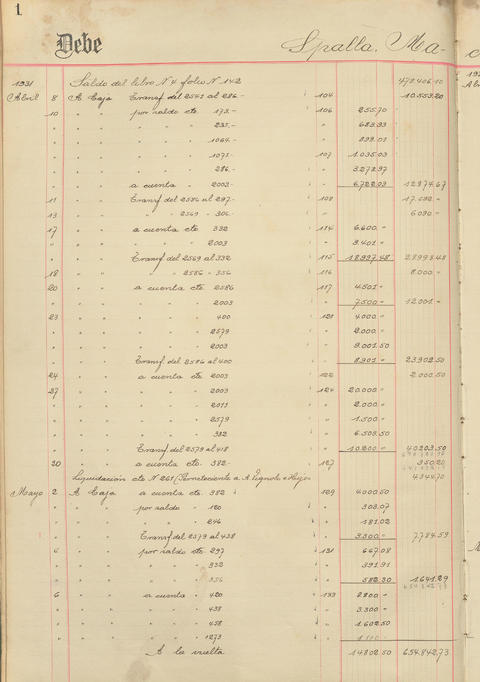 1
Debe Spalla. Ma-
1931 Saldo del libro N 4 folio N 142 478.406.10
Abril 8 A Caja Transf del 2561 al 286.- 104 10.553.20
10 " " por saldo cte 173.- 106 255.70
" " " " " 235.- " 683.93
" " " " " 1064.- " 899.01
" " " " " 1071.- 107 1.035.03
" " " " " 286.- " 3.272.97
" " " a cuenta " 2003- " 6.722.03 12874.67
11 " " Transf del 2586 al 297- 108 17.592.-
13 " " " " 2569 " 306.- " 6090.-
17 " " a cuenta cte 332 114 6.600.-
" " " " " 2003 " 3.401.-
" " " Transf del 2569 al 332 115 18.997.48 28998.48
18 " " " " 2586 - 356 116 8.000.-
20 " " a cuenta cte 2586 117 4.501-
" " " " " 2003 " 7.500- 12001.-
23 " " " " 400 121 4.000.-
" " " " " 2579 " 2.000.-
" " " " " 2003 " 9.001.50
" " " Transf del 2586 al 400 " 8.901- 23.902.50
24 " " a cuenta cte 2003 122 2.000.50
27 " " " " 2003 124 20.000-
" " " " " 2011 " 2.000.-
" " " " " 2579 " 1.500-
" " " " " 332 " 6.503.50
" " " Transf del 2579 al 418 " 10.200- 40203.50
30 " " a cuenta cte. 382- 127 350.20
Liquidación cte N 261 (Perteneciente a A. Vignolo e Hijos 434.70
Mayo 2 A Caja a cuenta cte 382 129 4000.50
" " " por saldo " 180 " 303.07
" " " " " 246 " 181.02
" " " Transf del 2579 al 438 " 3.300- 7.784.59
4 " " por saldo cte 297 131 667.08
" " " " " 332 " 391.91
" " " " " 356 " 582.30 1.641.29
6 " " a cuenta " 420 133 2.800-
" " " " " 438 " 3.300-
" " " " " 458 " 1.602.50
" " " " " 1273 "
A la vuelta 14802.50 654.842.73